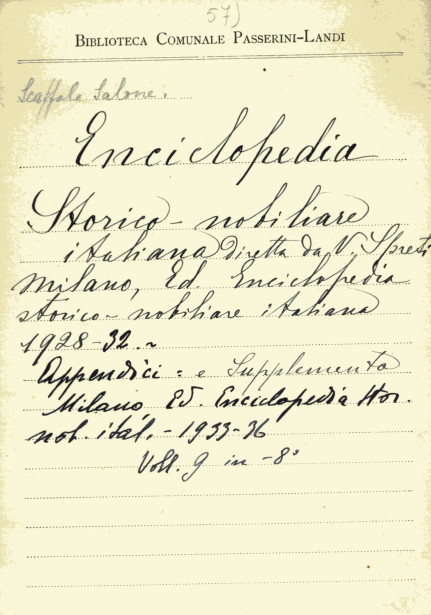 57)
BIBLIOTECA COMUNALE PASSERINI-LANDI
Scaffale Salone.
Enciclopedia
Storico-nobiliare
italiana diretta da V. Spreti
Milano, Ed. Enciclopedia
storico-nobiliare italiana
1928-32.~
Appendici: e Supplemento
Milano, Ed. Enciclopedia stor.
nob. ital. - 1933-36
Voll. 9 in -8°